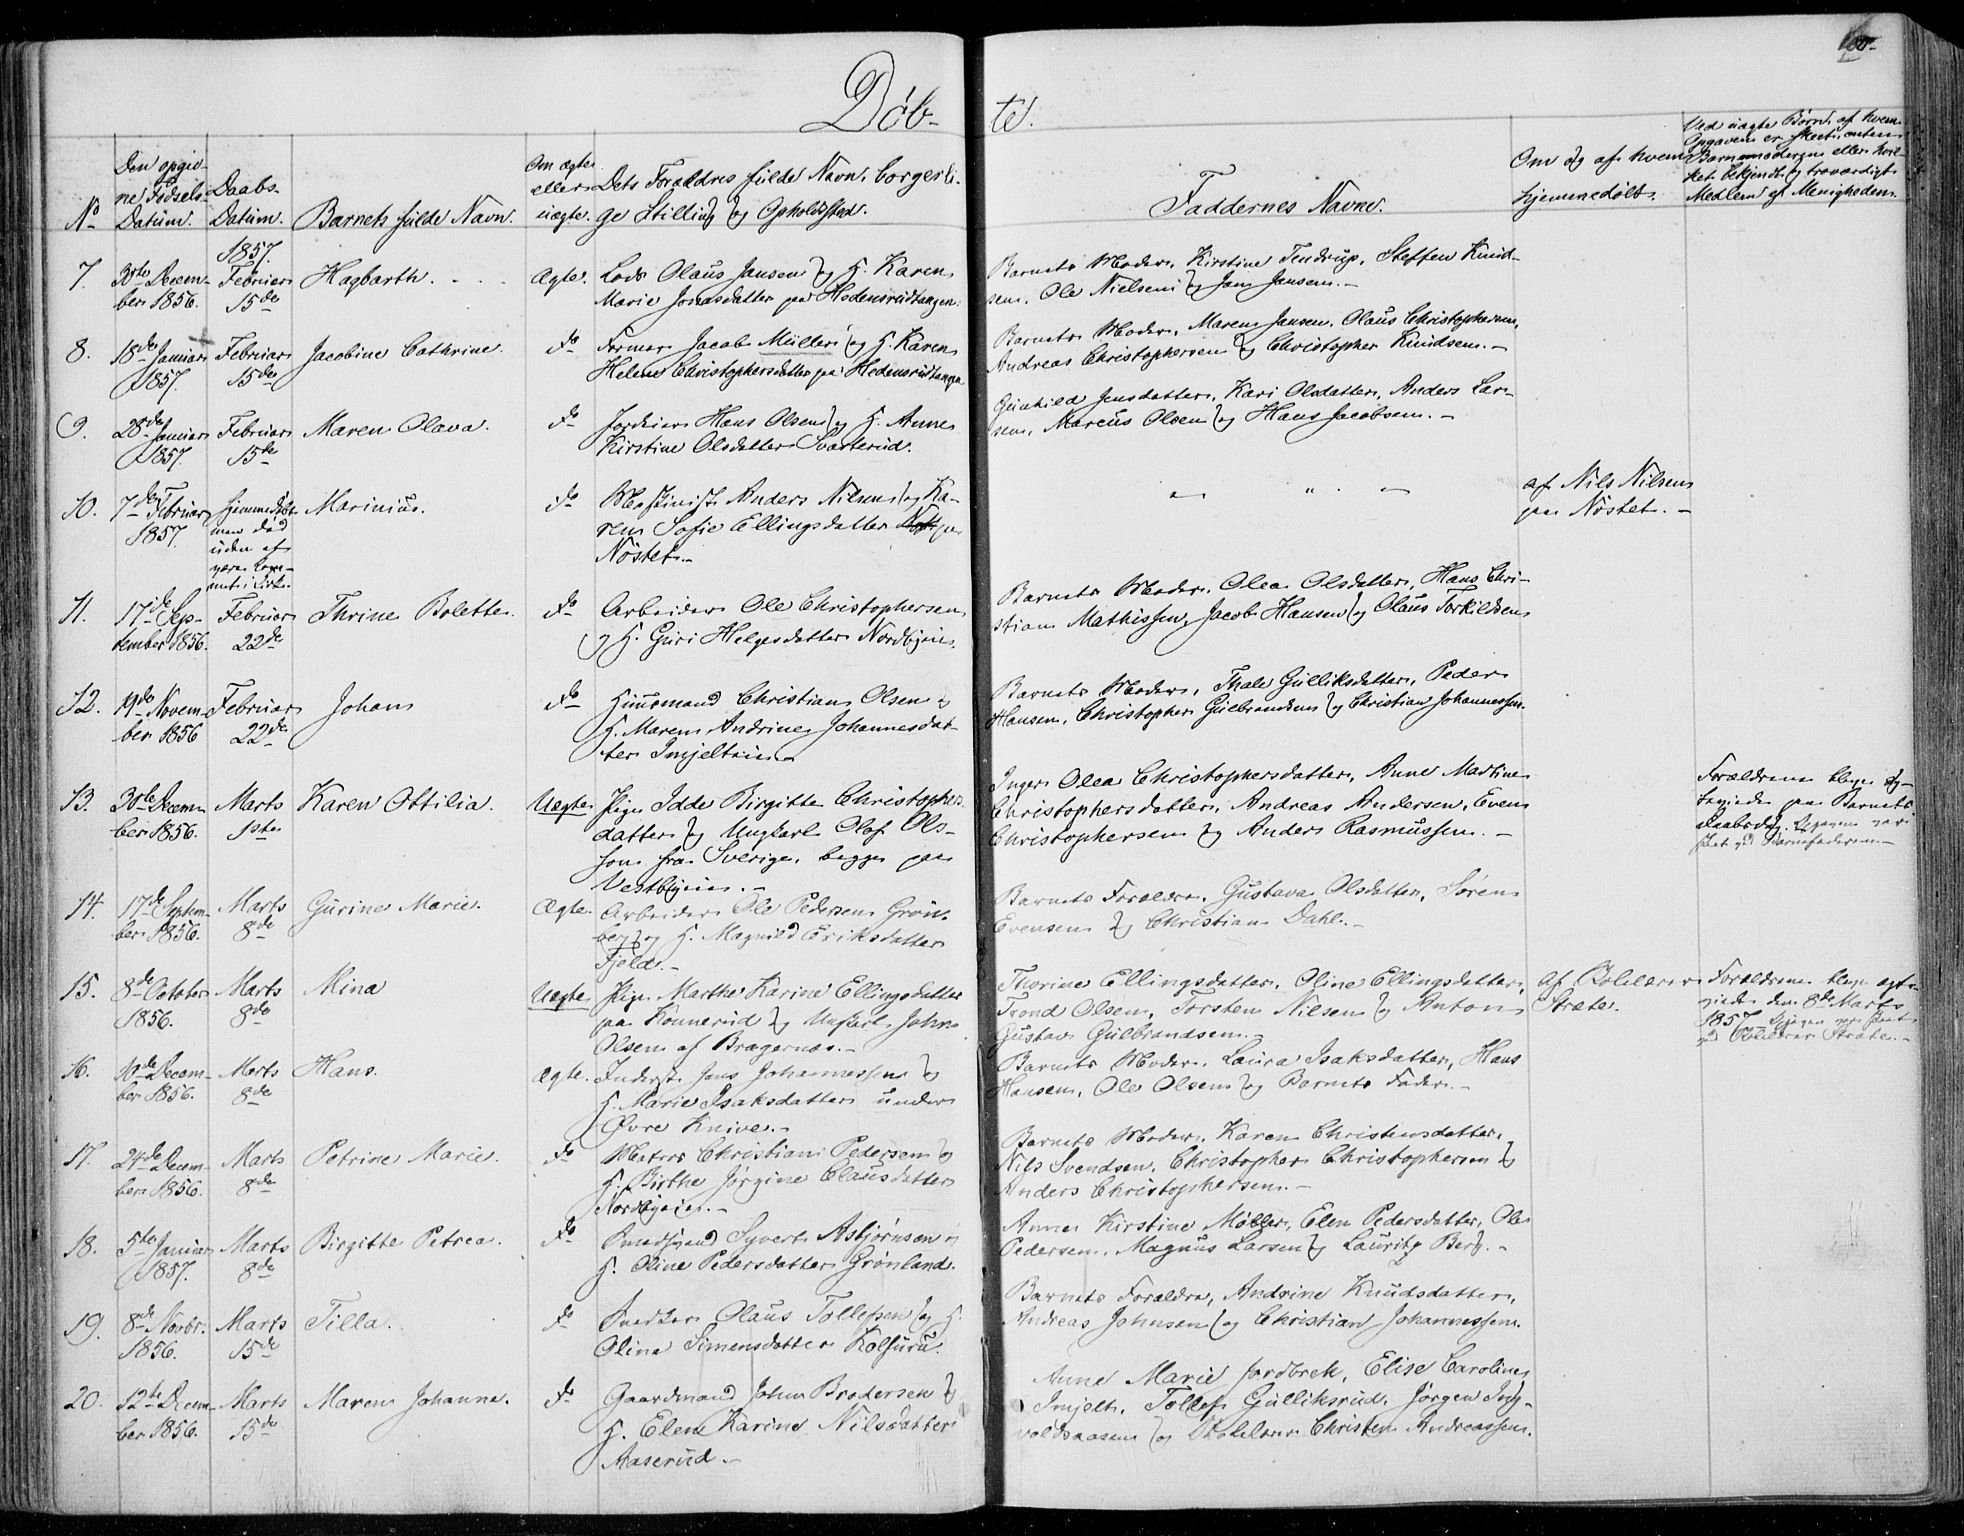 Døb-
te.
No
Den opgiv-
ne Fødsels-
Datum.
Daabs-
Datum.
Barnets fulde Navn.
Om ægte
eller
uægte.
Dets Forældres fulde Navn, borgerli-
ge Stilling og Opholdsted.
Faddernes Navne.
Om og af hvem
hjemmedøbt.
Ved uægte Børn, af hvem
Opgaven er skeet, enten
Barnemoderen eller hvil-
ket bekjendt og troværdigt
Medlem af Menigheden.
1857.
7.
30te Decem-
ber 1856.
Februar
15de
Hagbarth.
Ægte.
Lods Olaus Jansen og H. Karen
Marie Jonasdatter paa Hedensrudtangen.
Barnets Moder, Kirstine Tendrup, Steffen Knud-
sen, Ole Nielsen og Jan Jansen.-
8.
18de Januar
1857.
Februar
15de
Jacobine Cathrine.
do
Former Jacob Müller og H. Karen
Helene Christophersdatter paa Hedensrudtangen
Barnets Moder, Maren Jansen, Olaus Christophersen,
Andreas Christophersen og Christopher Knudsen.-
9.
28de Januar
1857.
Februar
15de
Maren Olava.
do
Jordeier Hans Olsen og H. Anne
Kirstine Olsdatter Svarterud.
Gunhild Jensdatter, Kari Olsdatter, Anders Lar-
sen, Marcus Olsen og Hans Jacobsen.-
10.
7de Februar
1857.
Hjemmedøbt
men død
uden at
være kom-
met i Kirke.
Marinius.
do
Maskinist Anders Nilsen og Ka-
ren Sofie Ellingsdatter paa
Nøstet.-
" " "
af Nils Nilsen
paa Nøstet.-
11.
17de Sep-
tember 1856.
Februar
22de
Thrine Bolette.
do
Arbeider Ole Christophersen
og H. Guri Helgesdatter Nordbyeie.
Barnets Moder, Olea Olsdatter, Hans Chri-
stian Mathissen, Jacob Hansen og Olaus Torkildsen
12.
19de Novem-
ber 1856
Februar
22de
Johan
do
Huusmand Christian Olsen og
H. Maren Andrine Johannesdat-
ter Imjelteie
Barnets Moder, Thale Gulliksdatter, Peder
Hansen, Christopher Gulbrandsen og Christian Johannessen.
13.
30te Decem-
ber 1856.
Marts
1ste
Karen Ottilia.
Uægte
Pige Idde Birgitte Christophers-
datter og Ungkarl Olof Ols-
son fra Sverige, begge paa
Vestbyeie.-
Inger Olea Christophersdatter, Anne Martine
Christophersdatter, Andreas Andersen, Even
Christophersen og Anders Rasmussen.-
Forældrene bleve
paa Barnets
Daabsdag. Opgaven var
skeet ved Barnefaderen.-
14.
17de Septem-
ber 1856.
Marts
8de
Gurine Marie.
Ægte.
Arbeider Ole Pedersen Grøn-
berg og H. Magnild Eriksdatter
Fjeld.-
Barnets Forældre, Gustava Olsdatter, Søren
Evensen og Christian Dahl.-
15.
8de October
1856.
Marts
8de
Mina
Uægte
Pige Marthe Karine Ellingsdatter
paa Konnerud og Ungkarl John
Olsen af Bragernæs.-
Thorine Ellingsdatter, Oline Ellingsdatter,
Trond Olsen, Torsten Nilsen og Anton
Gustav Gulbrandsen.-
af Skolelærer
Stræte.
Forældrene bleve ægte-
viede den 8de Marts
1857. Opgaven var skeet
ved Skolelærer Stræte.-
16.
10de Decem-
ber 1856.
Marts
8de
Hans.
Ægte.
Inderst Jens Johannessen og
H. Marie Isaksdatter under
Øvre Knive.-
Barnets Moder, Laura Isaksdatter, Hans
Hansen, Ole Olsen og Barnets Fader.-
17.
24de Decem-
ber 1856.
Marts
8de
Petrine Marie.
do
Matros Christian Pedersen og
H. Birthe Jørgine Clausdatter
Nordbyeie.-
Barnets Moder, Karen Christensdatter,
Nils Svendsen, Christopher Christophersen og
Anders Christophersen.-
18.
5te Januar
1857.
Marts
8de
Birgitte Petrea.
do
Syvert Asbjørnsen og
H. Oline Pedersdatter Grønland.
Anne Kirstine Møller, Elen Pedersdatter, Ole
Pedersen, Magnus Larsen og Lauritz Berg.-
19.
8de Novbr.
1856.
Marts
15de
Tilla.
do
Snedker Olaus Tollefsen og H.
Oline Simensdatter Kolsuru.
Barnets Forældre, Andrine Knudsdatter,
Andreas Johnsen og Christian Johannessen.
20.
12te Decem-
ber 1856.
Marts
15de
Maren Johanne.
do
Gaardmand John Brodersen og
H. Elen Karine Nilsdatter
Aaserud.-
Anne Marie Jordbrek, Elise Caroline
Imjelt, Tollef Gulliksrud, Jörgen Ing-
voldsaasen og Skolelærer Christen Andreassen.